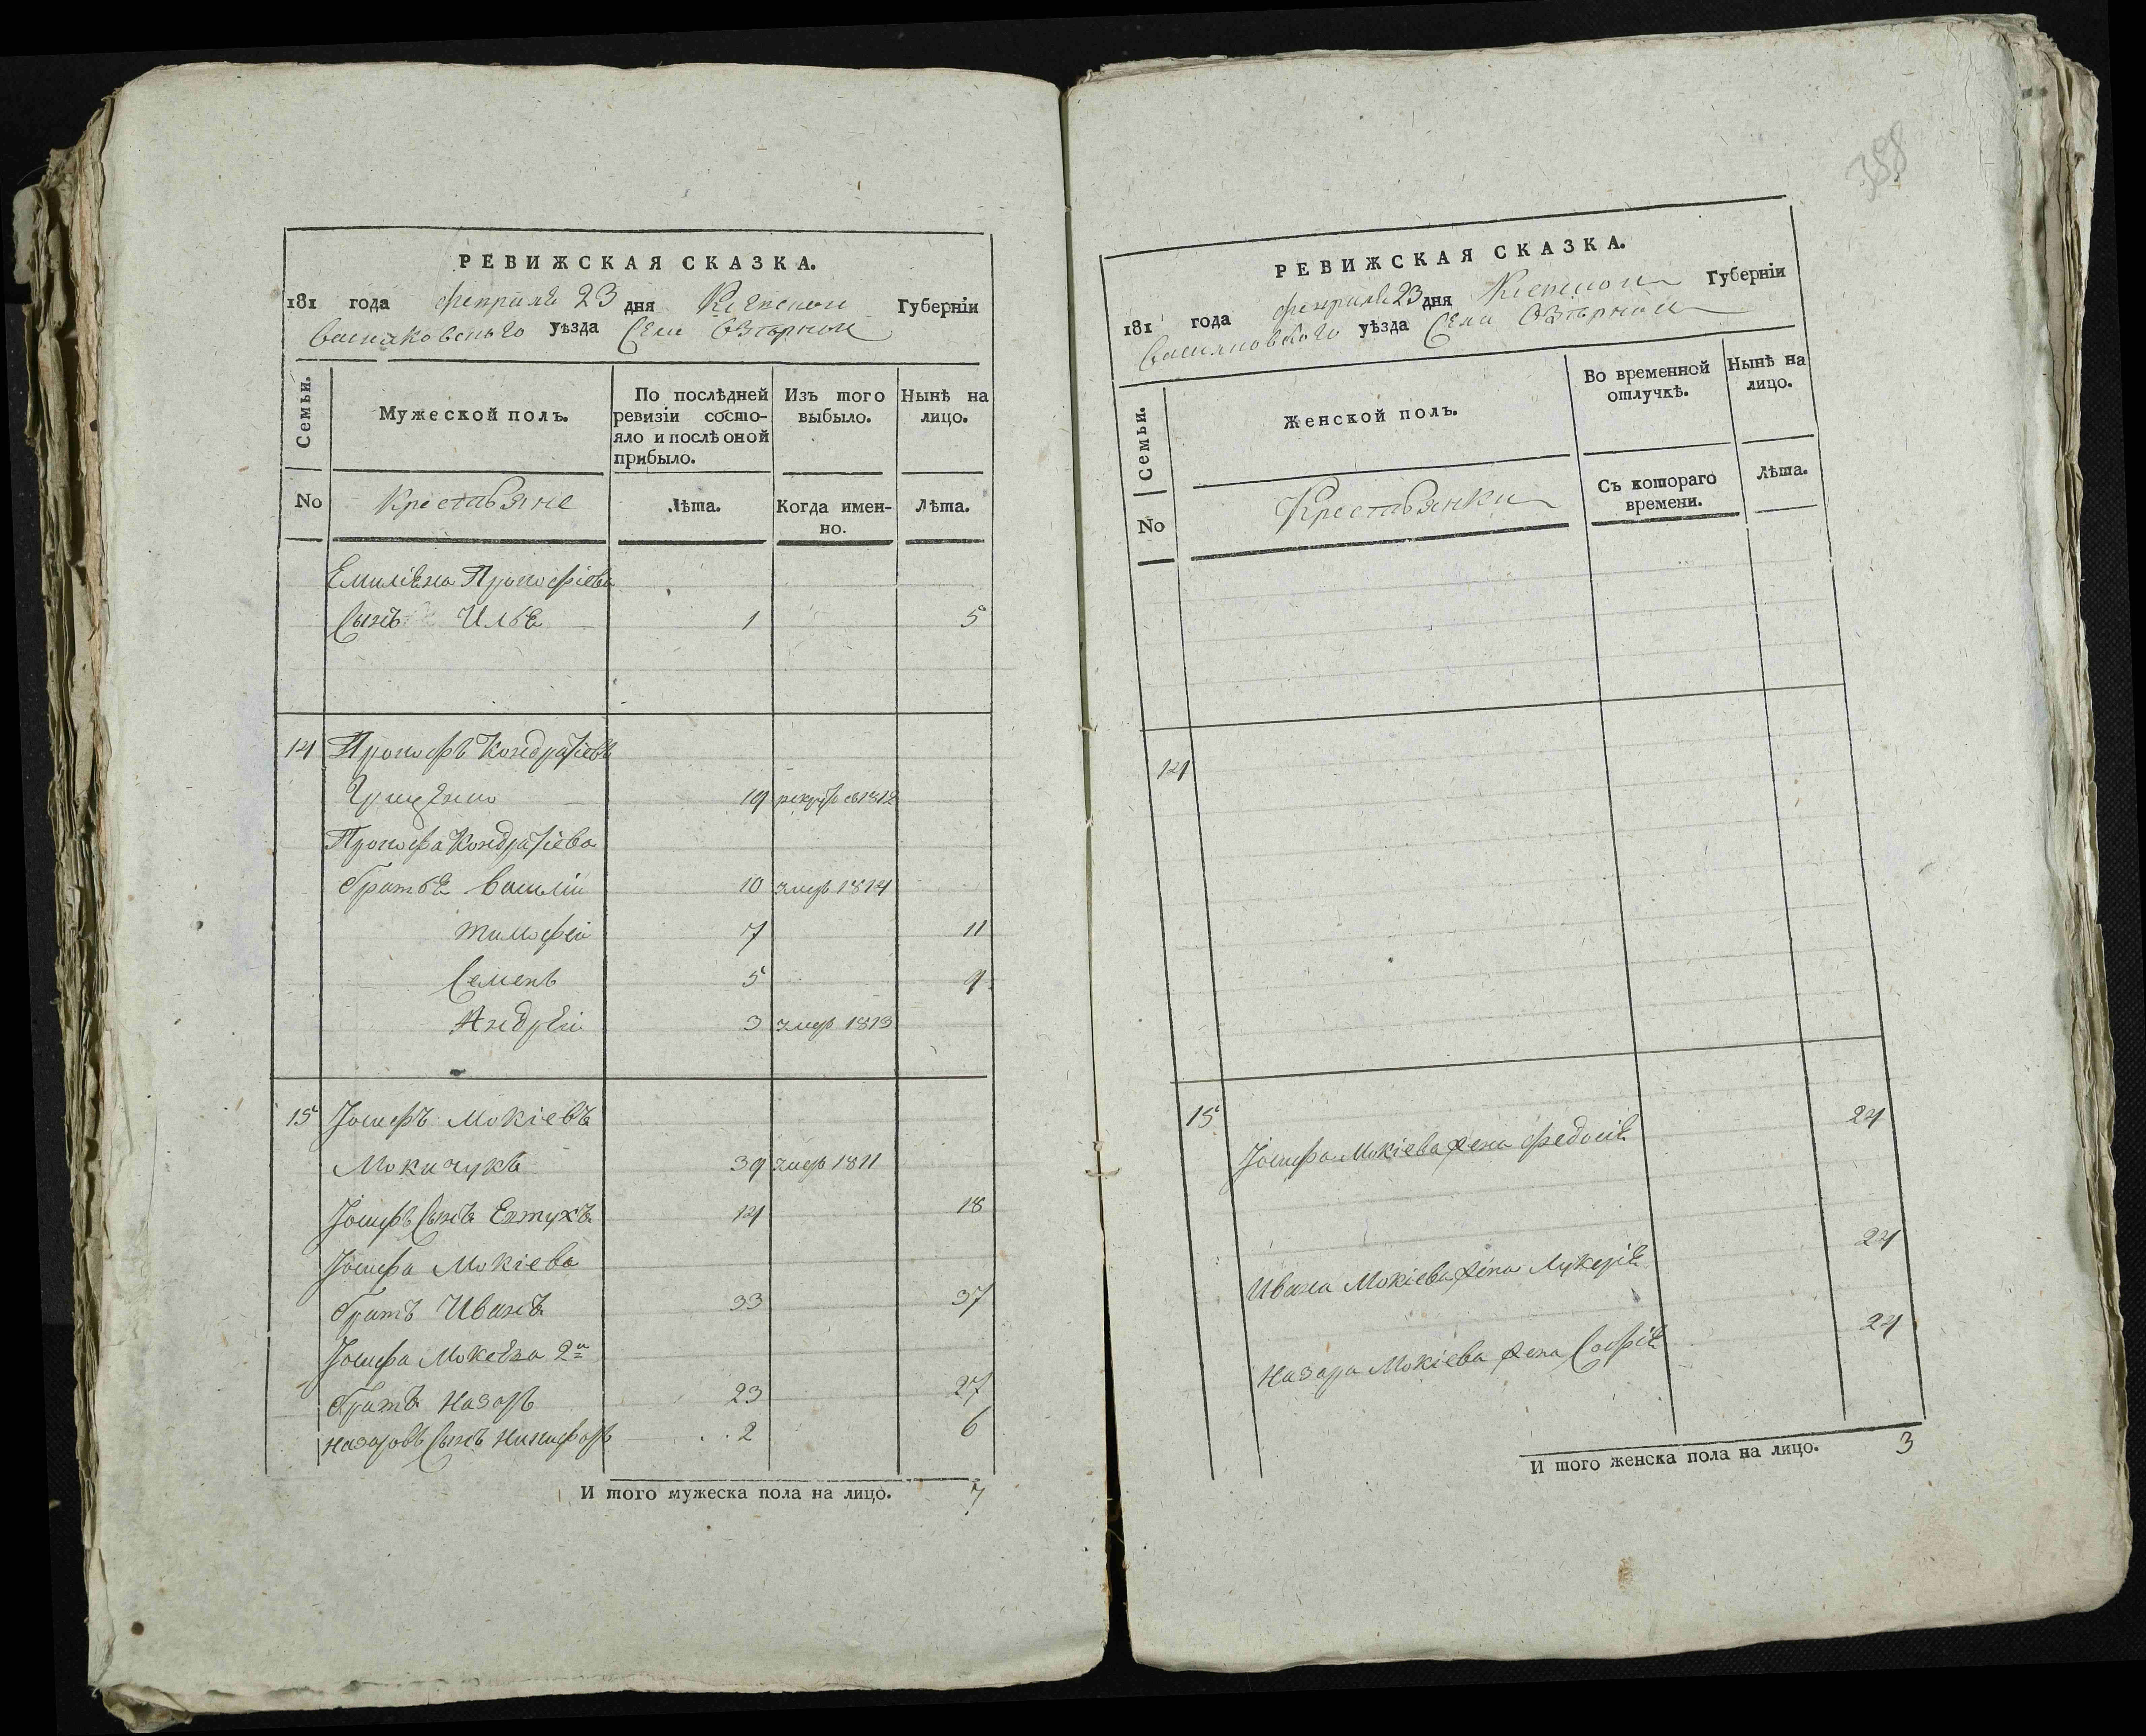 РЕВИЖСКАЯ СКАЗКА.
181 года февраля 23 дня Кіевской Губерніи
Васильковского уѣзда Села Озѣрной
Семьи.
Мужеской полъ.
По послѣдней ревизіи состояло и послѣ оной прибыло.
Изъ того выбыло.
Нынѣ на лицо.
No Крестьяне Лѣта. Когда именно. Лѣта.
Прокофіева
Сынъ Илья 1 5
14 Прокофъ Кондратіевъ
19 1812
Прокофа Кондратіева
братья Василій 10 умер 1814
тимофей 7 11
Семенъ 5 9
Андрей 3 умер 1813
15 Іосифъ Мокіевъ
Мокичукъ 39 умер 1811
Іосифъ Сынъ Евтухъ 14 18
Іосифа Мокіева
братъ Иванъ 33 37
Іосифа Мокеева 2й
братъ Назаръ 23 27
Назаровъ Сынъ Никифоръ 2 6
И того мужеска пола на лицо. 7
388
РЕВИЖСКАЯ СКАЗКА.
181 года февраля 23 дня Кіевской Губерніи
Васильковского уѣзда Села Озѣрной
Семьи.
Женской полъ.
Во временной отлучкѣ.
Нынѣ на лицо.
No Крестьянки Съ котораго времени. Лѣта.
14
15 Іосифа Мокіева жена Федосія 24
Ивана Мокіева жена Лукерія 24
Назара Мокіева жена Софія 24
И того женска пола на лицо. 3